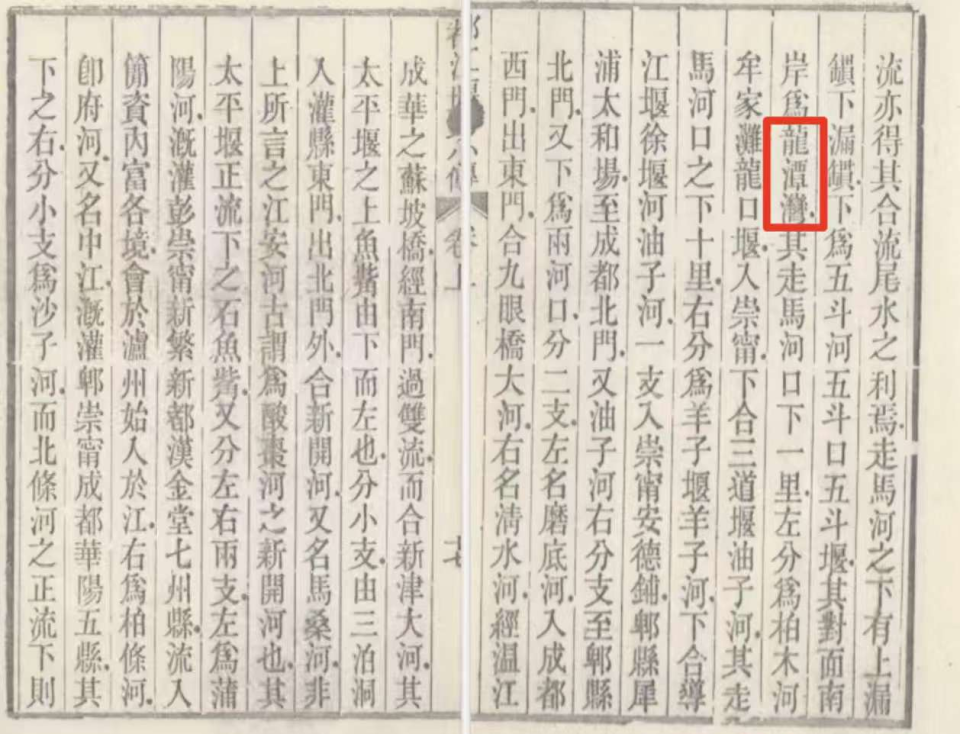 流亦得其合流尾水之利焉走馬河之下有上漏
鎖下漏鎖下爲五斗河五斗口五斗堰其對面南
岸爲龍潭灣其走馬河口下一里左分爲柏木河
牟家灘龍口堰入崇甯下合三道堰油子河其走
馬河口之下十里右分爲羊子堰羊子河下合導
江堰徐堰河油子河一支入崇甯安德鋪郫縣犀
浦太和場至成都北門又油子河右分支至郫縣
北門又下爲兩河口分二支左名磨底河入成都
西門出東門合九眼橋大河右名淸水河經温江
卷上
十七
成華之蘇坡橋經南門過雙流而合新津大河其
太平堰之上魚嘴由下而左也分小支由三泊洞
入灌縣東門出北門外合新開河又名馬桑河非
上所言之江安河古謂爲酸棗河之新開河也其
太平堰正流下之石魚嘴又分左右兩支左爲蒲
陽河漑灌彭崇甯新繁新都漢金堂七州縣流入
簡資內富各境會於瀘州始入於江右爲柏條河
卽府河又名中江漑灌郫崇甯成都華陽五縣其
下之右分小支爲沙子河而北條河之正流下則